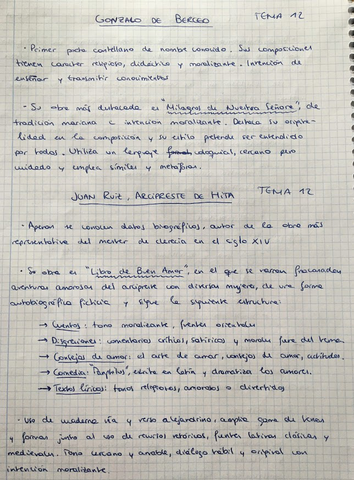 GONZALO DE BERCEO TEMA 12
· Primer poeta castellano de nombre conocido. Sus composiciones
tienen carácter religioso, didáctico y moralizante. Intención de
enseñar y transmitir conocimientos
· Su obra más destacada es "Milagros de Nuestra Señora", de
tradición mariana e intención moralizante. Destaca su origina-
lidad en la composición y su estilo pretende ser entendido
por todos. Utiliza un lenguaje coloquial, cercano pero
cuidado y emplea símiles y metáforas.
JUAN RUIZ, ARCIPRESTE DE HITA TEMA 12
· Apenas se conocen datos biográficos, autor de la obra más
representativa del mester de clerecía en el siglo XIV
· Su obra es "Libro de Buen Amor", en el que se narran fracasadas
aventuras amorosas del arcipreste con diversas mujeres, de una forma
autobiográfica ficticia y sigue la siguiente estructura:
→ Cuentos: tono moralizante, fuentes orientales
→ Digresiones: comentarios críticos, satíricos y morales fuera del tema.
→ Consejos de amor: el arte de amar, consejos de amor, actitudes.
→ Comedia: "Pamphilus", escrita en latín y dramatiza los amores.
→ Textos líricos: tonos religiosos, amorosos o divertidos
· Uso de cuaderna vía y verso alejandrino, amplia gama de temas
y formas junto al uso de recursos retóricos, fuentes latinas clásicas y
medievales. Tono cercano y amable, diálogo hábil y original con
intención moralizante.